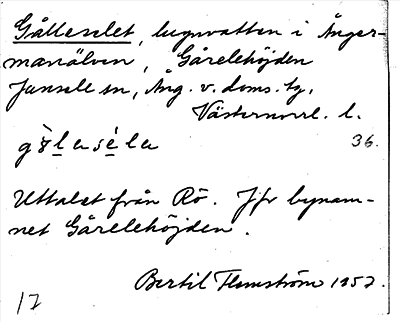 Gålleselet, lugnvatten i Ånger-
manälven, Gårelehöjden
Junsele sn, Ång. v. doms. tg.
Västernorrl. l.
36.
Uttalet från Rö. Jfr bynam-
net Gårelehöjden.
Bertil Flemström 1957.
17